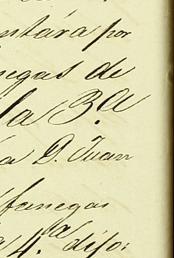 ntára por
negas de
la 3.a
a D. Juan
fanegas
4.a difor